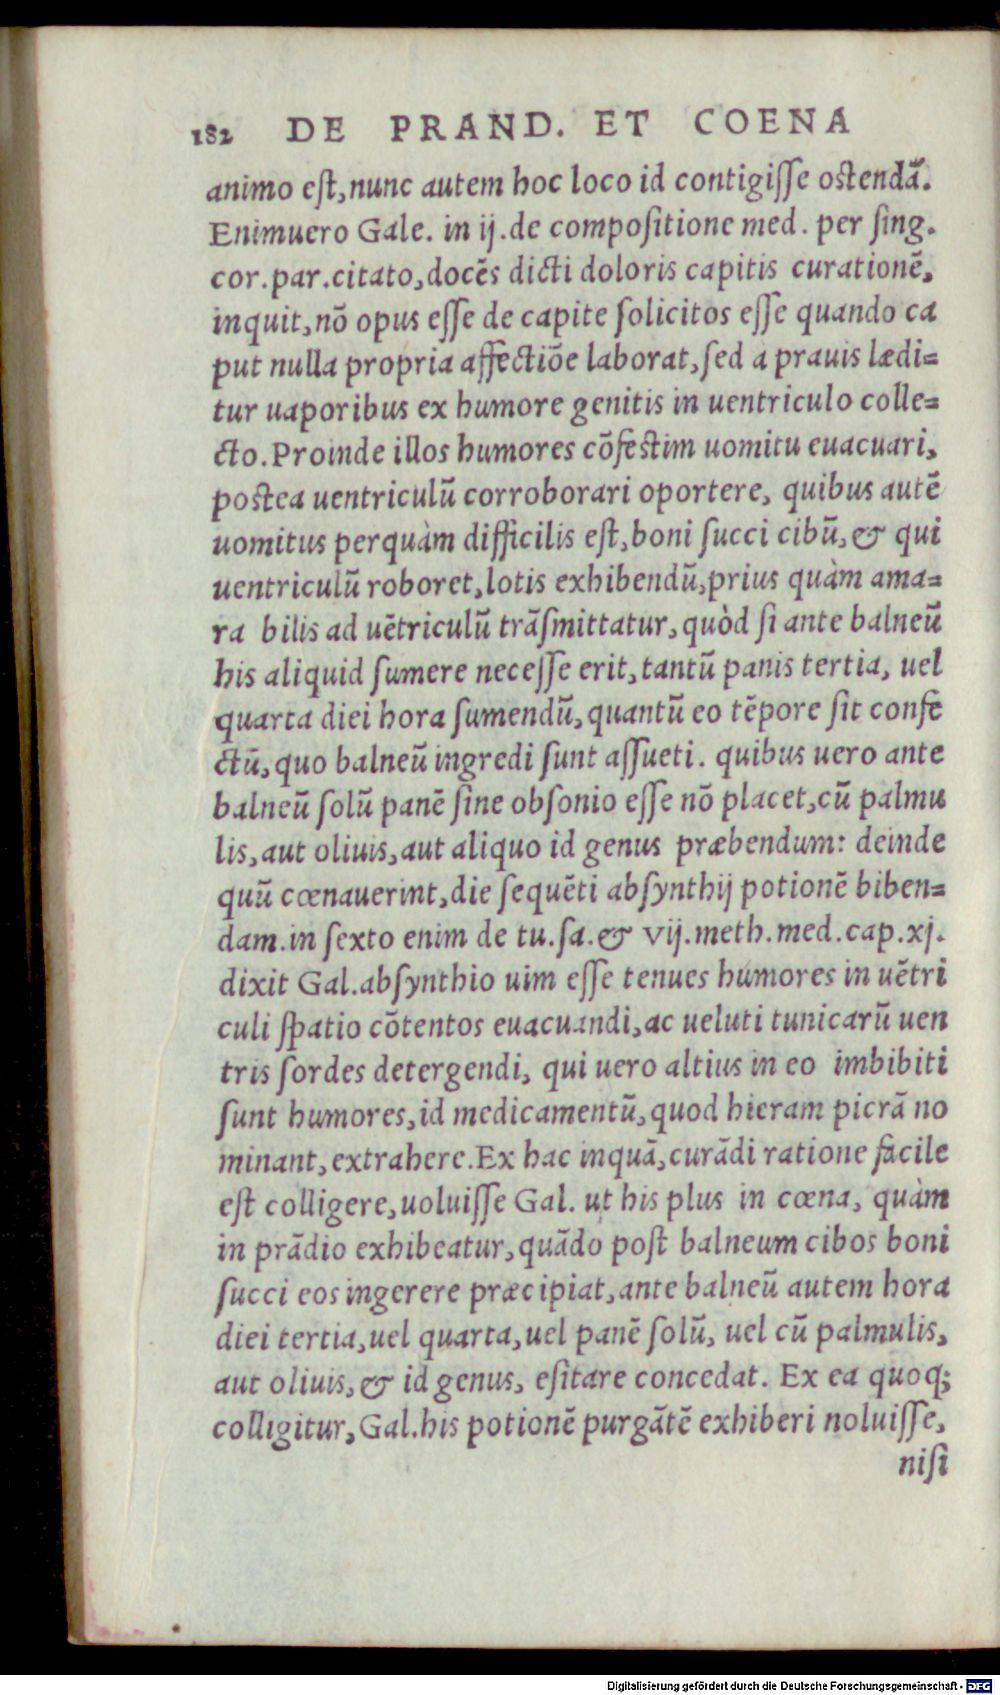 182 DE PRAND. ET COENA
animo est, nunc autem hoc loco id contigisse ostendã.
Enimuero Gale. in ij. de compositione med. per sing.
cor. par. citato, docẽs dicti doloris capitis curationẽ,
inquit, nõ opus esse de capite solicitos esse quando ca
put nulla propria affectiõe laborat, sed a prauis lædi=
tur uaporibus ex humore genitis in uentriculo colle=
cto. Proinde illos humores cõfestim uomitu euacuari,
postea uentriculũ corroborari oportere, quibus autẽ
uomitus perquàm difficilis est, boni succi cibũ, & qui
uentriculũ roboret, lotis exhibendũ, prius quàm ama=
ra bilis ad uẽtriculũ trãsmittatur, quòd si ante balneũ
his aliquid sumere necesse erit, tantũ panis tertia, uel
quarta diei hora sumendũ, quantũ eo tẽpore sit confe
ctũ, quo balneũ ingredi sunt assueti. quibus uero ante
balneũ solũ panẽ sine obsonio esse nõ placet, cũ palmu
lis, aut oliuis, aut aliquo id genus præbendum: deinde
quũ cœnauerint, die sequẽti absynthij potionẽ biben=
dam. in sexto enim de tu. sa. & vij. meth. med. cap. xj.
dixit Gal. absynthio uim esse tenues humores in uẽtri
culi spatio cõtentos euacuandi, ac ueluti tunicarũ uen
tris sordes detergendi, qui uero altius in eo imbibiti
sunt humores, id medicamentũ, quod hieram picrã no
minant, extrahere. Ex hac inquã, curãdi ratione facile
est colligere, uoluisse Gal. ut his plus in cœna, quàm
in prãdio exhibeatur, quãdo post balneum cibos boni
succi eos ingerere præcipiat, ante balneũ autem hora
diei tertia, uel quarta, uel panẽ solũ, uel cũ palmulis,
aut oliuis, & id genus, esitare concedat. Ex ea quoq;
colligitur, Gal. his potionẽ purgãtẽ exhiberi noluisse,
nisi
Digitalisierung gefördert durch die Deutsche Forschungsgemeinschaft - DFG